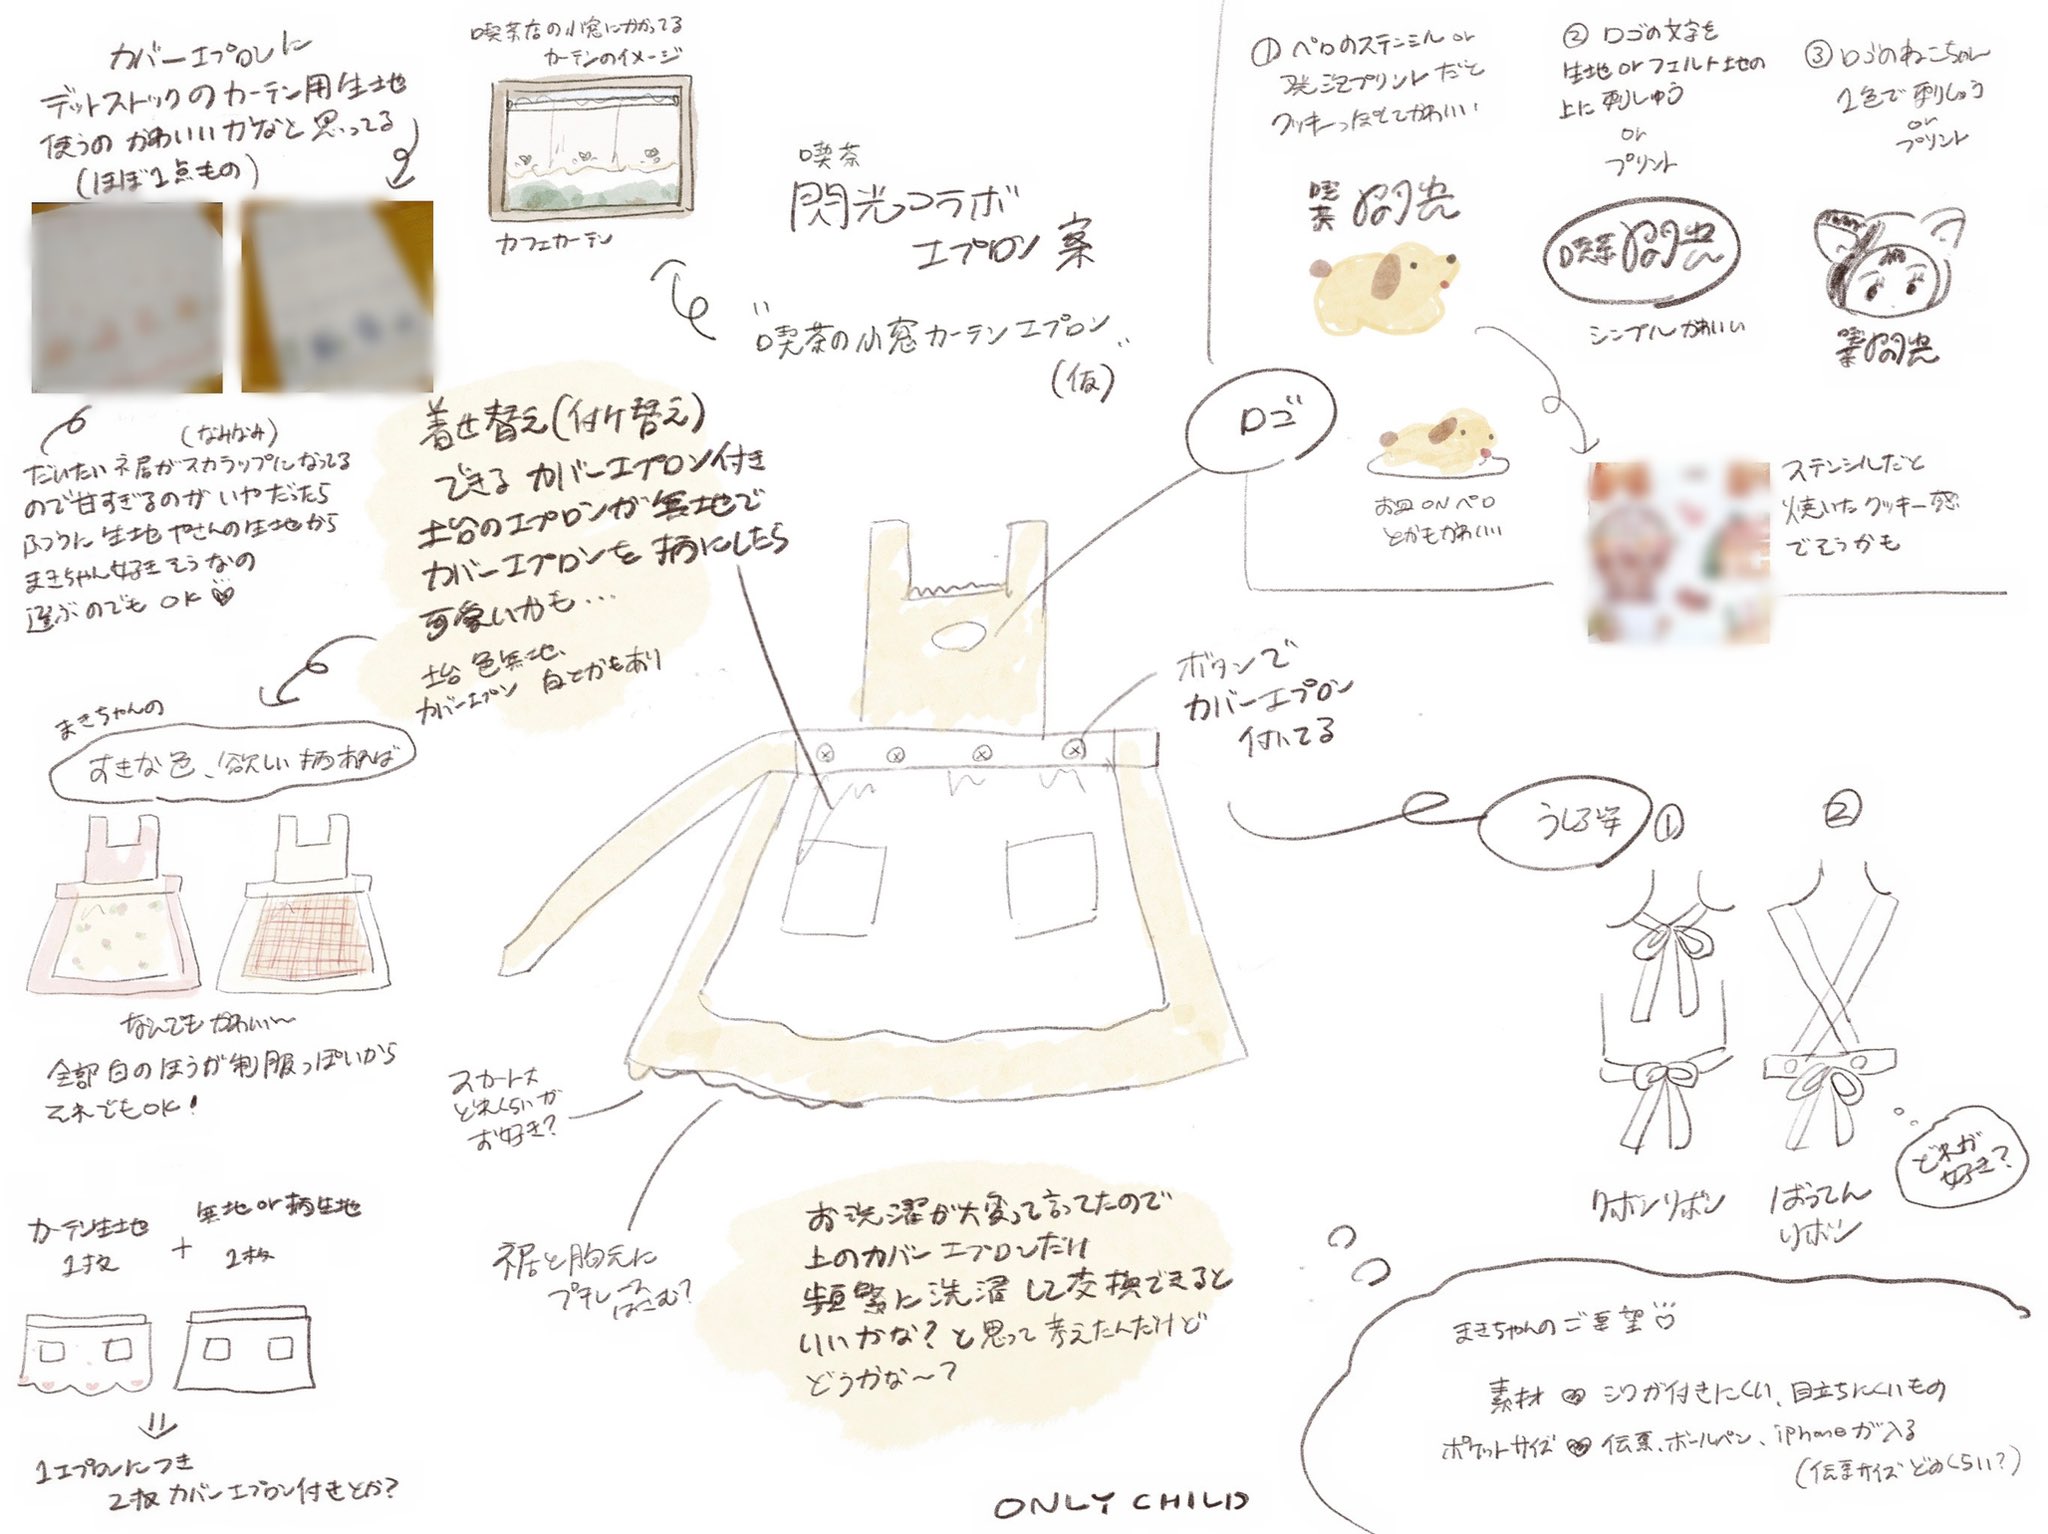 カバーエプロンに
デットストックのカーテン用生地
使うの かわいいかなと思ってる
(ほぼ1点もの)
喫茶店の小窓にかかってる
カーテンのイメージ
カフェカーテン
喫茶
閃光コラボ
エプロン案
"喫茶の小窓カーテンエプロン"
(仮)
① ペロのステンシル or
発泡プリントだと
クッキーっぽくてかわいい
喫茶 閃光
② ロゴの文字を
生地 or フェルト地の
上に刺しゅう
or
プリント
喫茶閃光
シンプルかわいい
③ ロゴのねこちゃん
1色で刺しゅう
or
プリント
喫茶閃光
お皿 ON ペロ
とかもかわいい
ステンシルだと
焼いたクッキー感
でそうかも
ロゴ
(なみなみ)
だいたい裾がスカラップになってる
ので甘すぎるのがいやだったら
ふつうに生地やさんの生地から
まきちゃん好きそうなの
選ぶのでもOK♡
着せ替え(付け替え)
できる カバーエプロン付き
土台のエプロンが無地で
カバーエプロンを柄にしたら
可愛いかも…
土台 色無地、
カバーエプロン 白とかもあり
まきちゃんの
すきな色、欲しい柄あれば
なんでもかわいい〜
全部白のほうが制服っぽいから
それでもOK!
ボタンで
カバーエプロン
付いてる
うしろ姿
①
②
リボンリボン
ばってん
リボン
どれが
好き?
スカート丈
どれくらいが
お好き?
裾と胸元に
プチレース
はこむ?
お洗濯が大変って言ってたので
上のカバーエプロンだけ
頻繁に洗濯して交換できると
いいかな?と思って考えたんだけど
どうかな〜?
カーテン生地
1枚
+
無地or柄生地
1枚
=
1エプロンにつき
2枚カバーエプロン付きとか?
まきちゃんのご要望
素材 ♡ シワが付きにくい、目立ちにくいもの
ポケットサイズ ♡ 伝票、ボールペン、iPhoneが入る
(伝票サイズどのくらい?)
ONLY CHILD